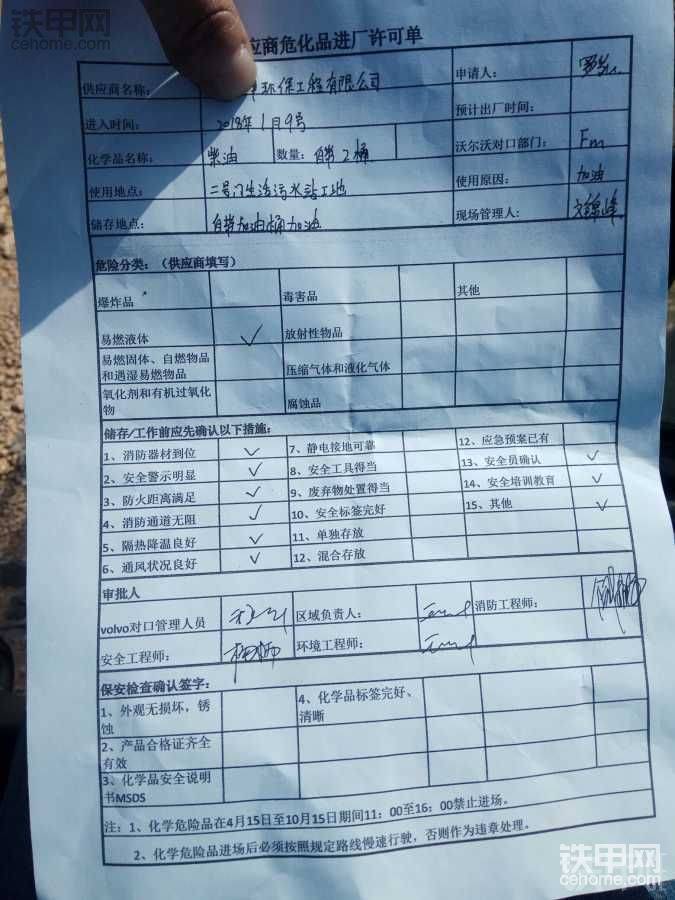 铁甲网
cehome.com
应商危化品进厂许可单
供应商名称： 环保工程有限公司 申请人：
进入时间： 2018年1月9号 预计出厂时间：
化学品名称： 柴油 数量： 自带2桶 沃尔沃对口部门： Fm
使用地点： 二号门生活污水站工地 使用原因： 加油
储存地点： 自带加油桶加油 现场管理人：
危险分类：（供应商填写）
爆炸品 毒害品 其他
易燃液体 ✓ 放射性物品
易燃固体、自燃物品和遇湿易燃物品 压缩气体和液化气体
氧化剂和有机过氧化物 腐蚀品
储存/工作前应先确认以下措施：
1、消防器材到位 ✓ 7、静电接地可靠 12、应急预案已有
2、安全警示明显 ✓ 8、安全工具得当 13、安全员确认 ✓
3、防火距离满足 ✓ 9、废弃物处置得当 14、安全培训教育 ✓
4、消防通道无阻 ✓ 10、安全标签完好 15、其他 ✓
5、隔热降温良好 ✓ 11、单独存放
6、通风状况良好 ✓ 12、混合存放
审批人
volvo对口管理人员 区域负责人： 消防工程师：
安全工程师： 环境工程师：
保安检查确认签字：
1、外观无损坏，锈蚀 4、化学品标签完好、清晰
2、产品合格证齐全有效
3、化学品安全说明书MSDS
注：1、化学危险品在4月15日至10月15日期间11：00至16：00禁止进场。
2、化学危险品进场后必须按照规定路线慢速行驶，否则作为违章处理。
铁甲网
cehome.com